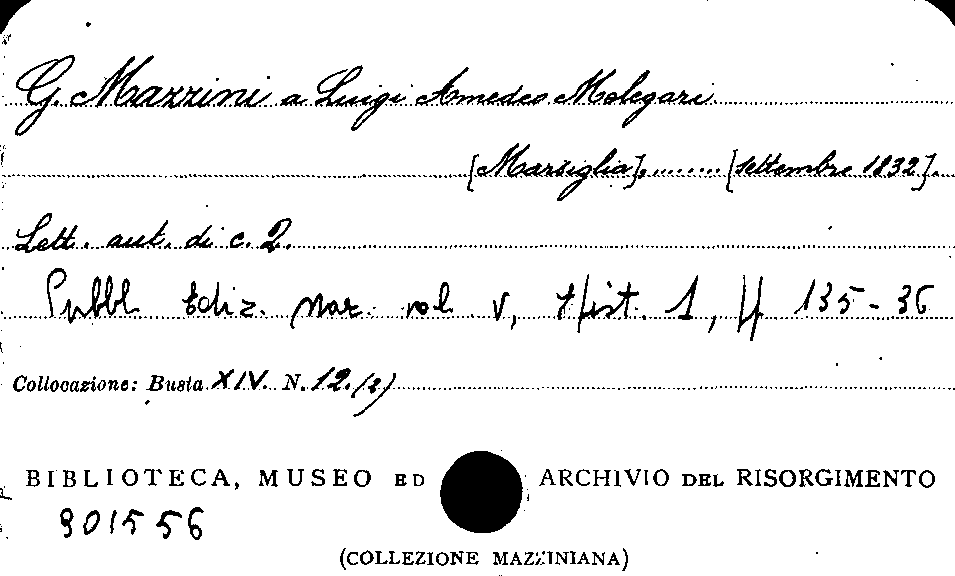 G. Mazzini a Luigi Amedeo Melegari
[Marsiglia], ........ [settembre 1832].
Lett. aut. di c. 2.
Pubbl. Ediz. naz. vol. V, Epist. 1, pp 135-36
Collocazione: Busta XIV. N. 12. (2)
BIBLIOTECA, MUSEO ED ARCHIVIO DEL RISORGIMENTO
901556
(COLLEZIONE MAZZINIANA)